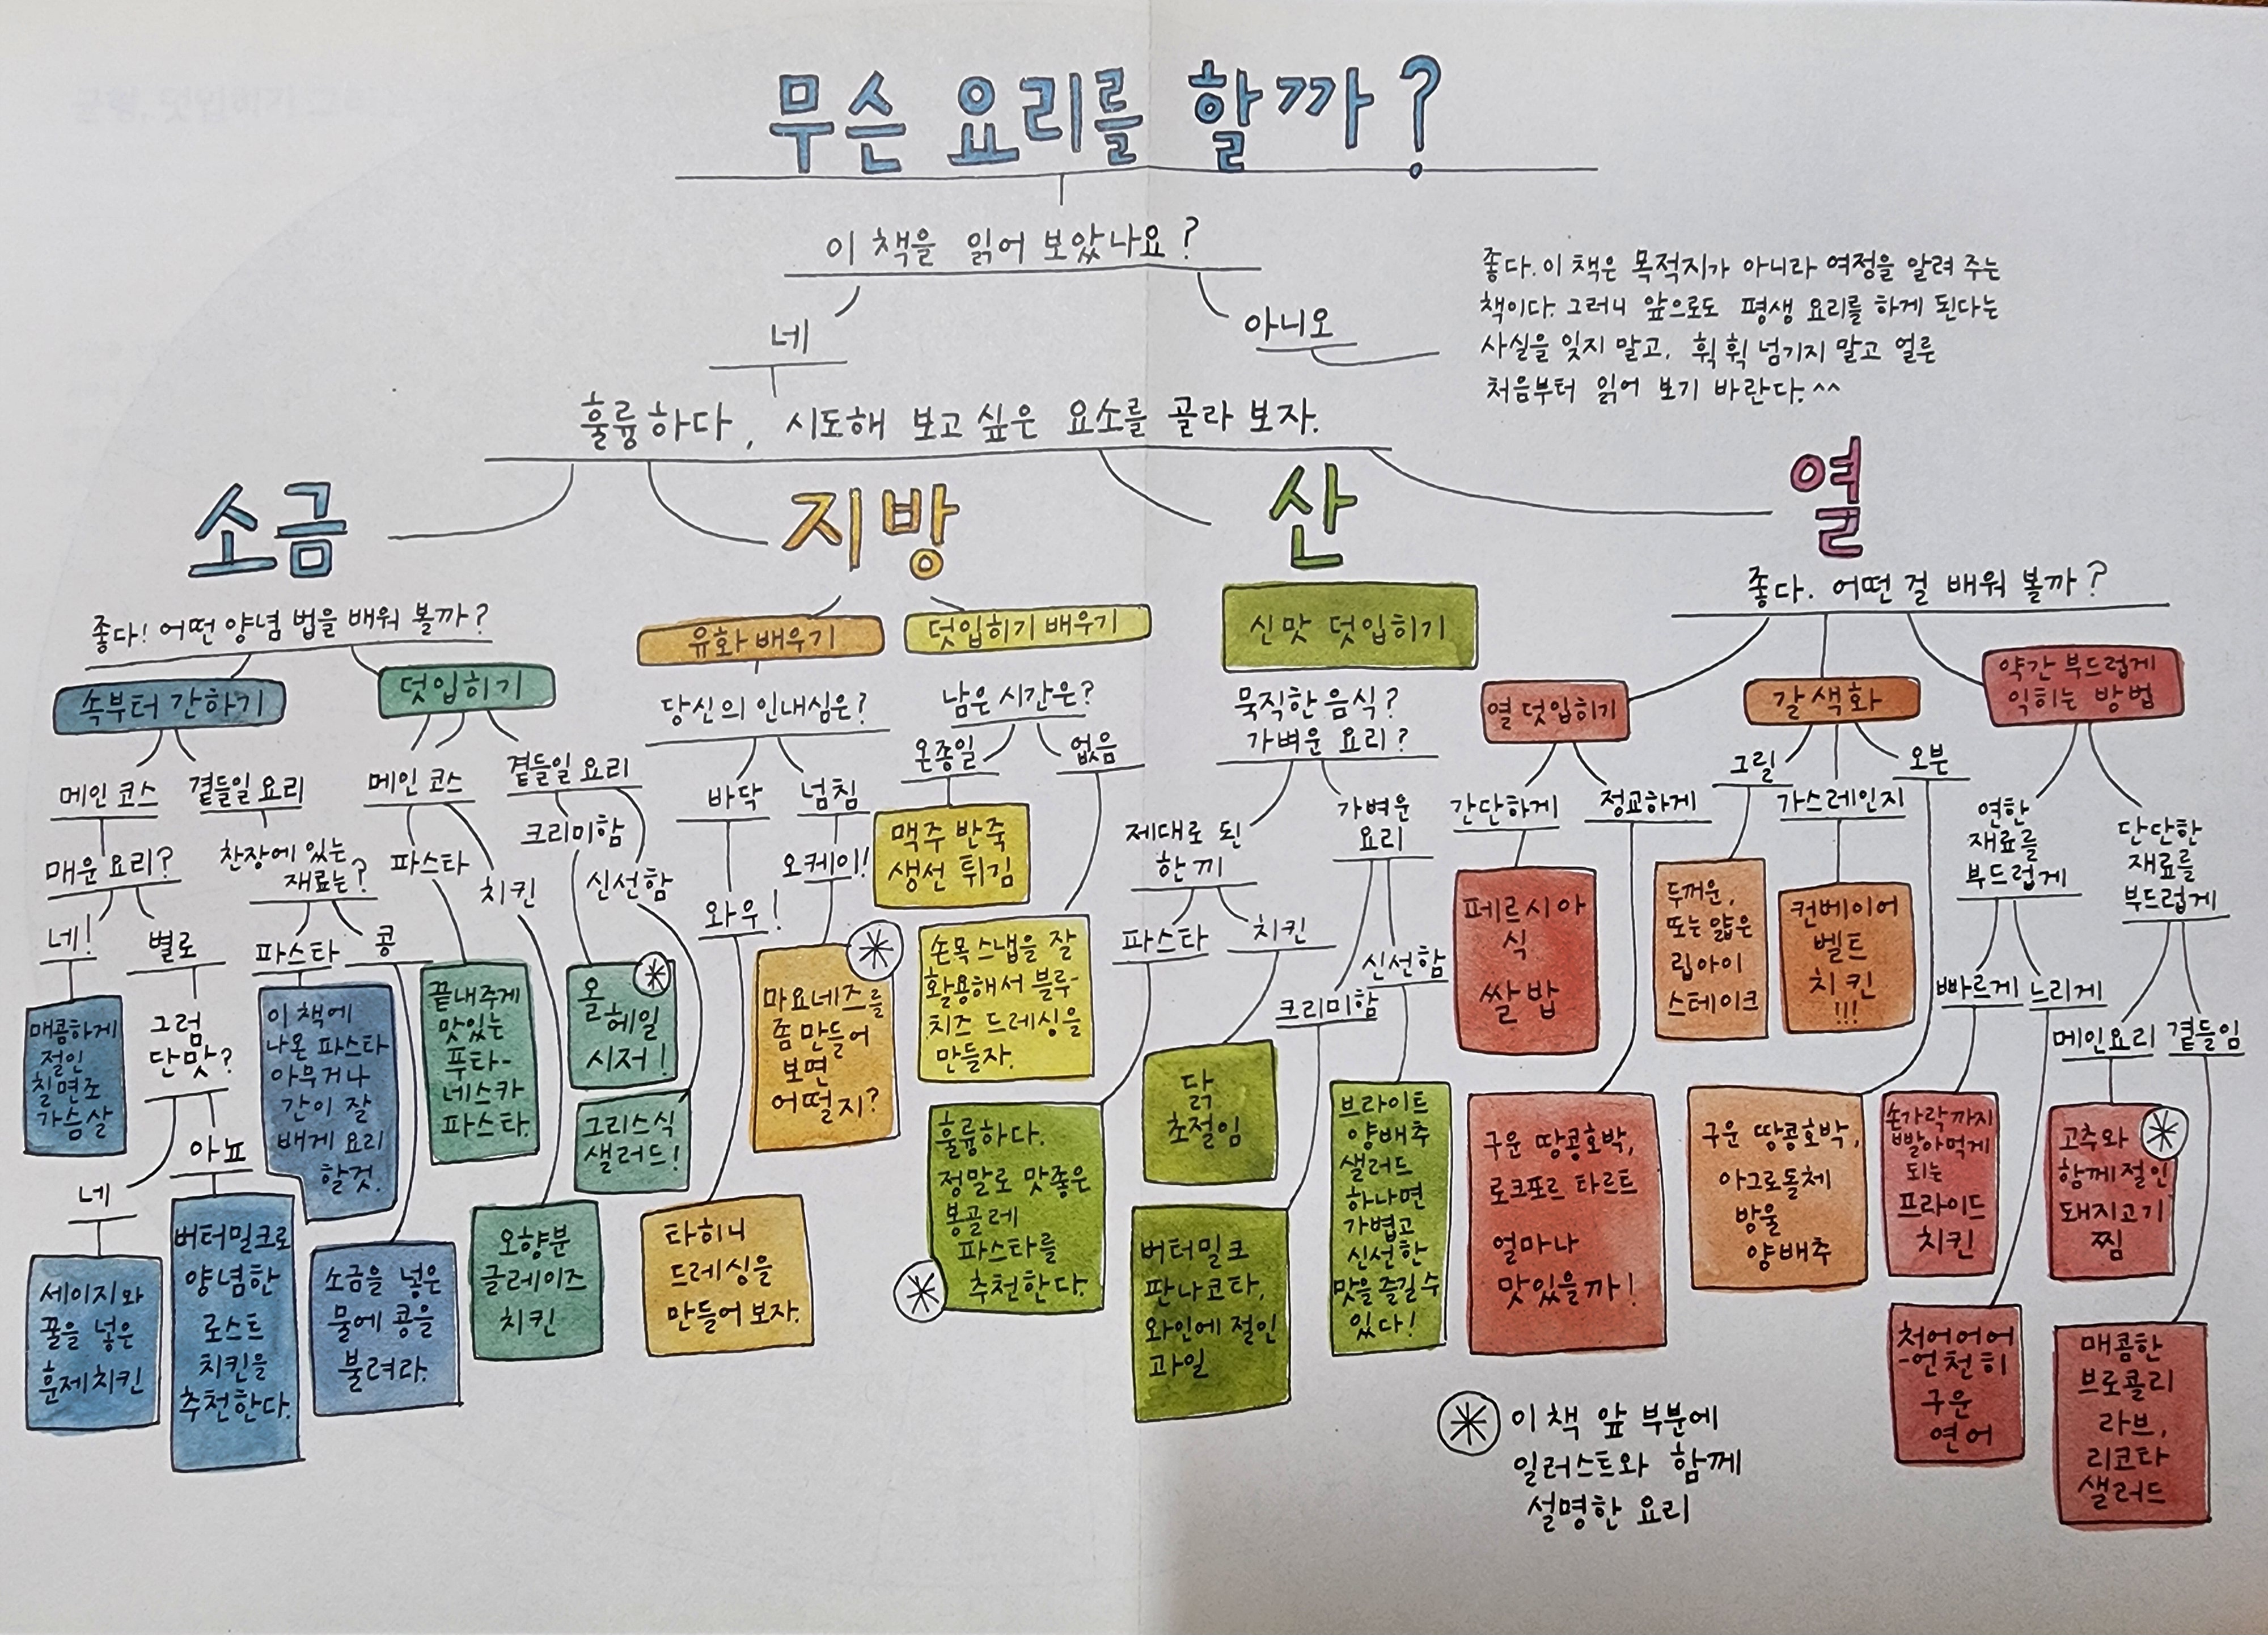 무슨 요리를 할까?
이 책을 읽어 보았나요?
네
아니오
좋다. 이 책은 목적지가 아니라 여정을 알려 주는
책이다. 그러니 앞으로도 평생 요리를 하게 된다는
사실을 잊지 말고, 휙휙 넘기지 말고 얼른
처음부터 읽어 보기 바란다.^^
훌륭하다, 시도해 보고 싶은 요소를 골라 보자.
소금
좋다! 어떤 양념 법을 배워 볼까?
속부터 간하기
메인 코스
매운 요리?
네!
매콤하게
절인
칠면조
가슴살
별로
그럼
단맛?
네
세이지와
꿀을 넣은
훈제치킨
아뇨
버터밀크로
양념한
로스트
치킨을
추천한다.
곁들일 요리
찬장에 있는
재료는?
파스타
이 책에
나온 파스타
아무거나
간이 잘
배게 요리
할것.
콩
소금을 넣은
물에 콩을
불려라.
덧입히기
메인 코스
파스타
끝내주게
맛있는
푸타-
네스카
파스타.
치킨
오향분
글레이즈
치킨
곁들일 요리
크리미함
올
헤일
시저!
신선함
그리스식
샐러드!
지방
유화 배우기
당신의 인내심은?
바닥
와우!
타히니
드레싱을
만들어 보자.
넘침
오케이!
마요네즈를
좀 만들어
보면
어떨지?
덧입히기 배우기
남은 시간은?
온종일
맥주 반죽
생선 튀김
없음
손목 스냅을 잘
활용해서 블루-
치즈 드레싱을
만들자.
산
신맛 덧입히기
묵직한 음식?
가벼운 요리?
제대로 된
한 끼
파스타
훌륭하다.
정말로 맛좋은
봉골레
파스타를
추천한다.
치킨
닭
초절임
가벼운
요리
크리미함
버터밀크
판나코타,
와인에 절인
과일
신선함
브라이트
양배추
샐러드
하나면
가볍고
신선한
맛을 즐길 수
있다!
열
좋다. 어떤 걸 배워 볼까?
열 덧입히기
간단하게
페르시아
식
쌀밥
정교하게
구운 땅콩호박,
로크포르 타르트
얼마나
맛있을까!
갈색화
그릴
두꺼운,
또는 얇은
립아이
스테이크
가스레인지
컨베이어
벨트
치킨
!!!
오븐
구운 땅콩호박,
아그로돌체
방울
양배추
약간 부드럽게
익히는 방법
연한
재료를
부드럽게
빠르게
손가락까지
빨아먹게
되는
프라이드
치킨
느리게
처어어어
-언천히
구운
연어
단단한
재료를
부드럽게
메인요리
고추와
함께 절인
돼지고기
찜
곁들임
매콤한
브로콜리
라브,
리코타
샐러드
이 책 앞 부분에
일러스트와 함께
설명한 요리